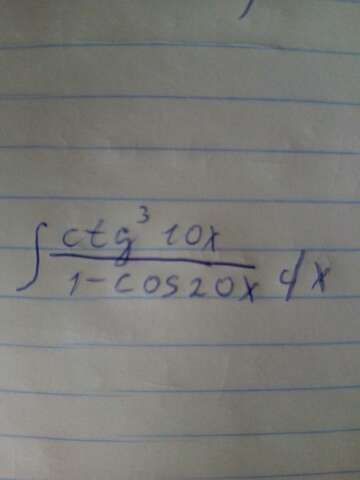 ∫ ctg³ 10x
1-cos20x dx